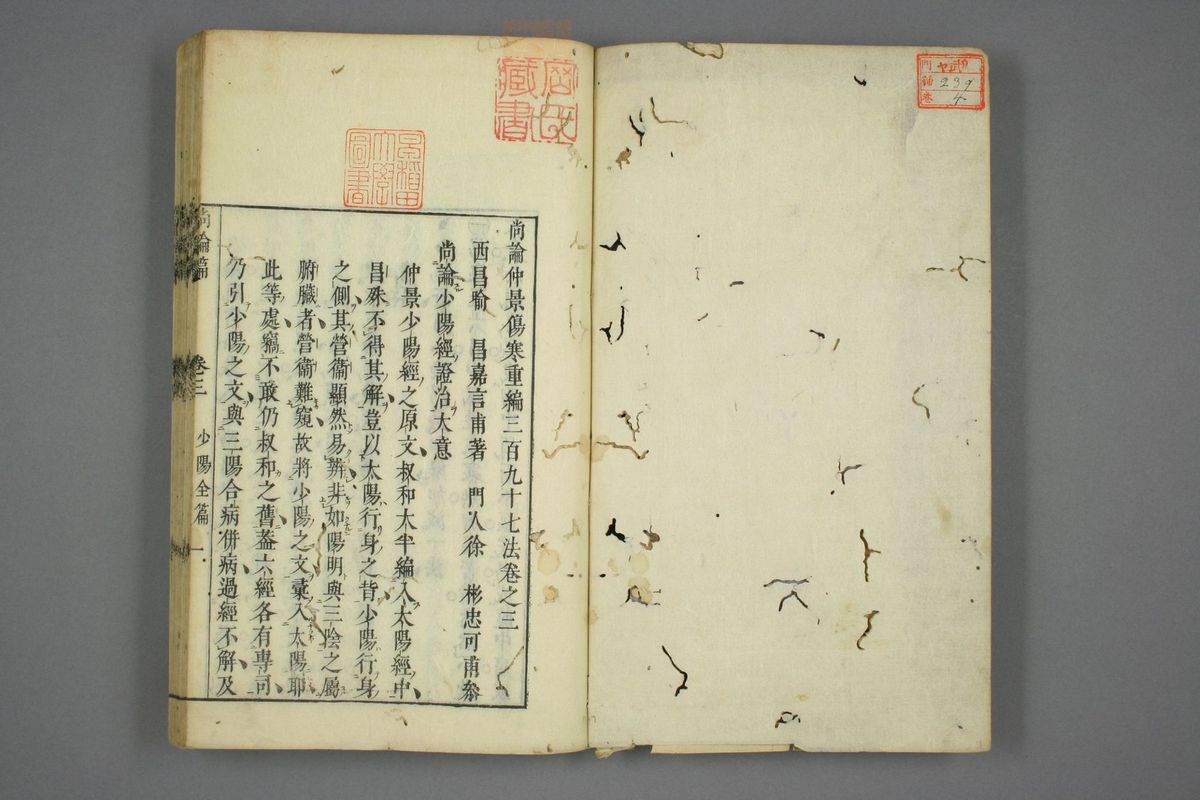 尚論仲景傷寒重編三百九十七法卷之三
西昌喻 昌嘉言甫著 門人徐 彬忠可甫叅
尚論少陽經證治大意
仲景少陽經之原文叔和大半編入太陽經中
昌殊不得其解豈以太陽行身之背少陽行身
之側其營衞顯然易辨非如陽明與三陰之屬
腑臟者營衞難窺故將少陽之文彙入太陽耶
此等處竊不敢仍叔和之舊葢六經各有專司
乃引少陽之文與三陽合病併病過經不解及
尚論篇 卷三 少陽全篇 一
藏書
早稲田
大學
圖書
門
號 239
卷 4